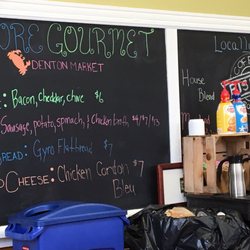 ORE GOURMET
DENTON MARKET
: Bacon, cheddar, chive $6
Sausage, potato, spinach, & Chicken broth $4/$7/$13
READ: Gyro Flatbread $7
D CHEESE: Chicken Cordon $7
Bleu
Locall
House
Blend